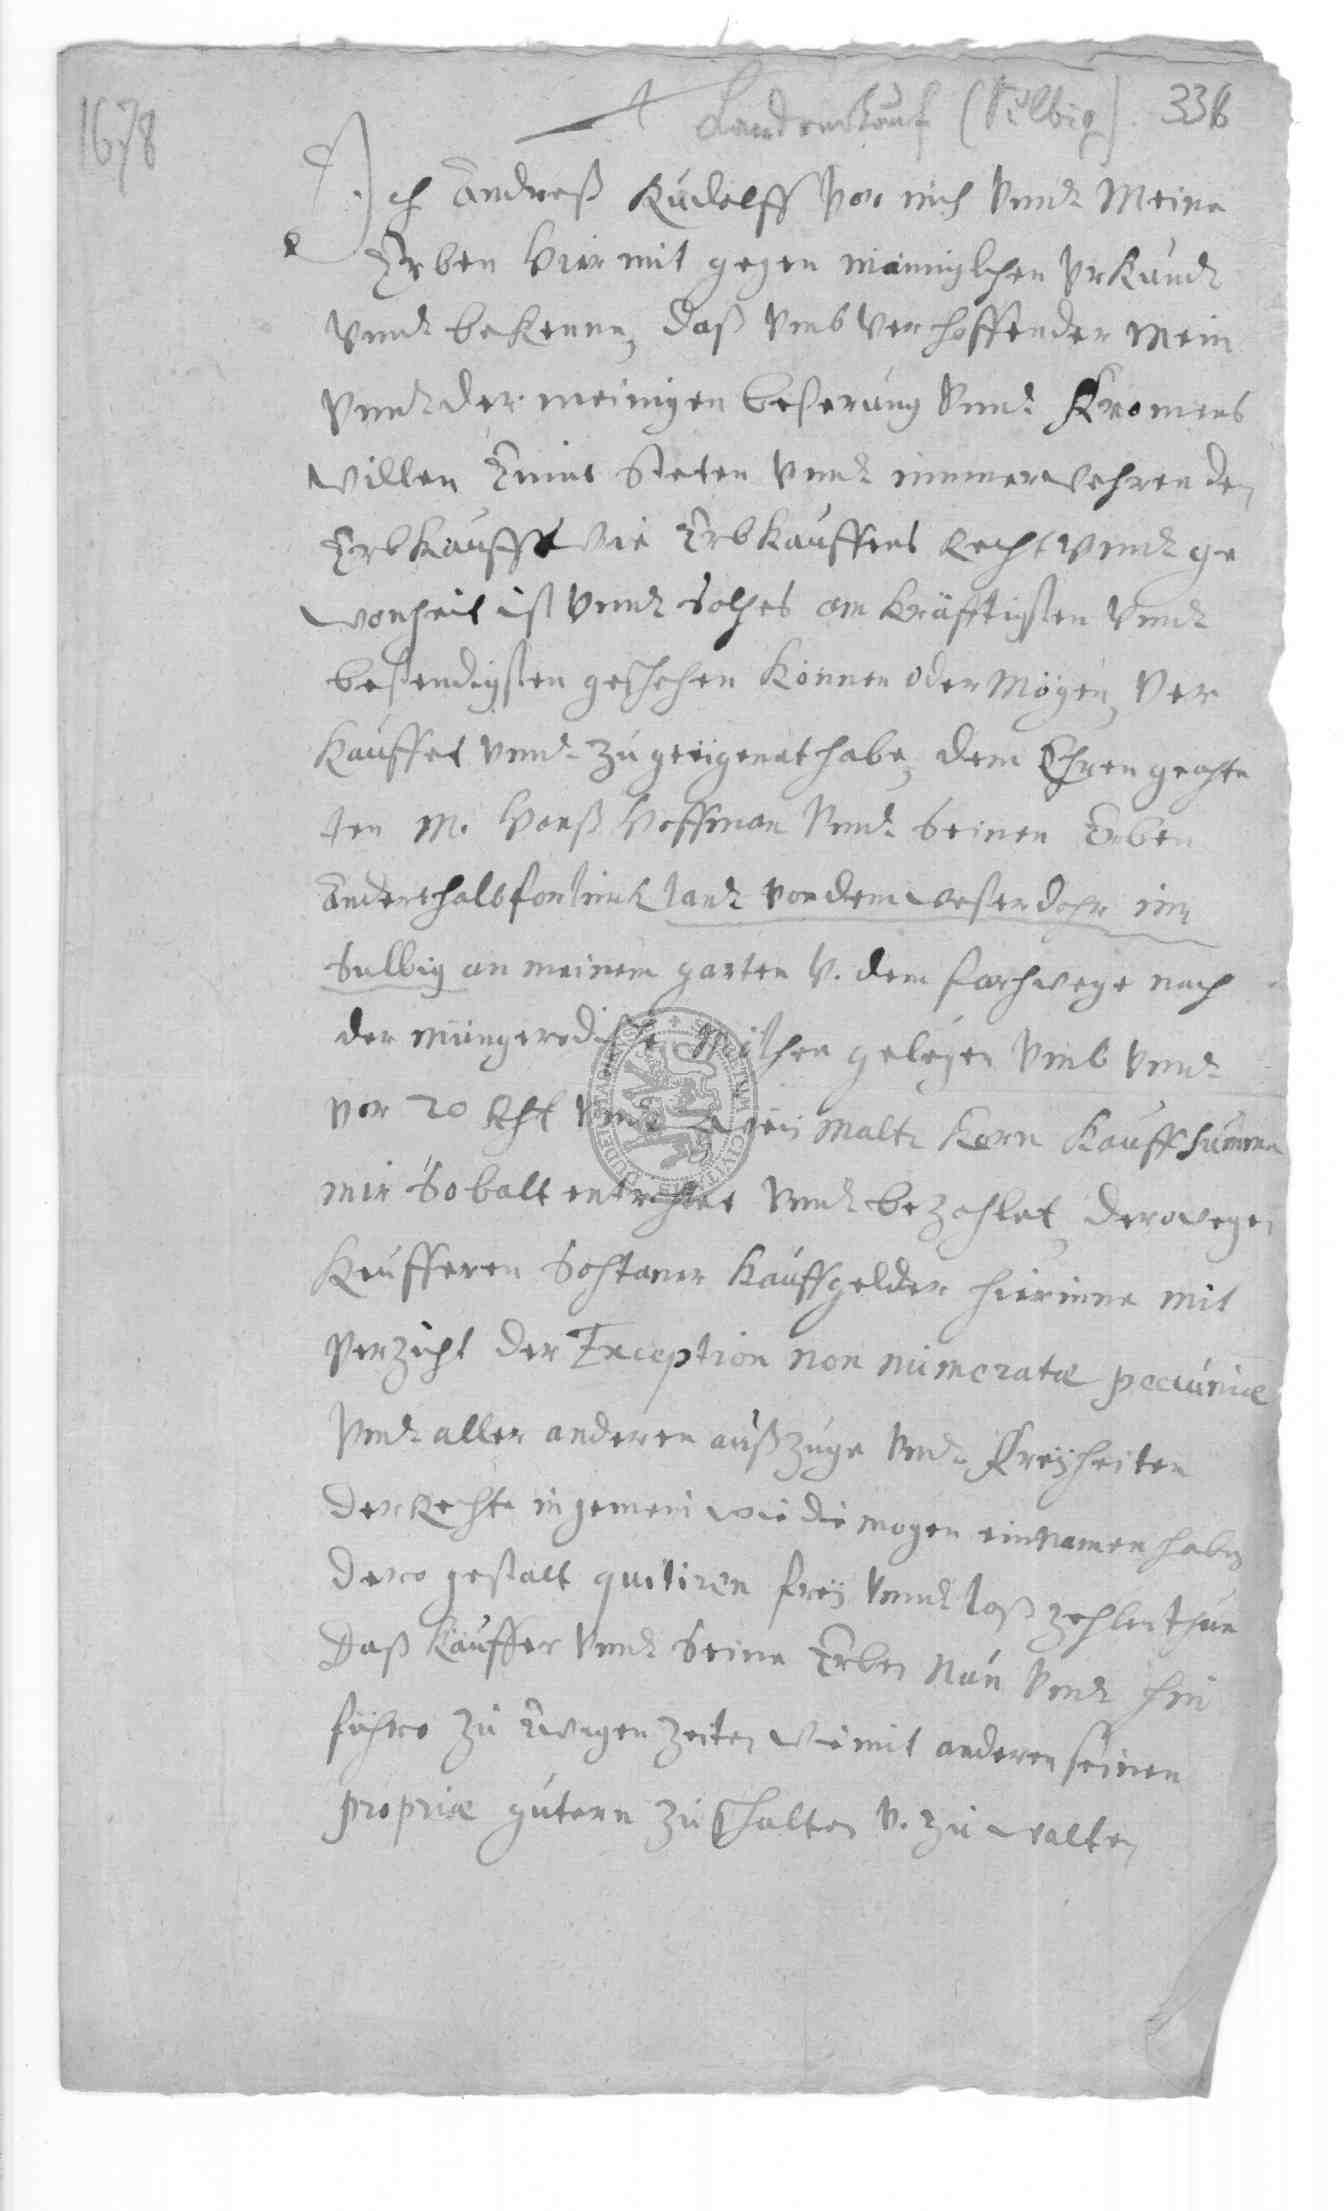 1678
Landverkauf (Sülbig) 336
Ich Andreß Rudolff vor mich undt Meine
Erben Hiermit gegen männiglichen Urkundt
undt bekenne, daß umb verhoffender Mein
undt der meinigen beßerung undt Fromens
willen Eines Steten undt immerwehrenden
Erbkauffs wie Erbkauffens Recht undt ge
wonheit ist undt Solches am kräfftigsten undt
bestendigsten geschehen können oder Mögen, Ver
kauffet undt zugeeigenet habe, dem Ehrengeachte
ten M. Hanß Hoffman undt Seinen Erben
Anderthalb landt vor dem weßerdohr im
Sulbig an meinem garten v. dem farhwege nach
der Müngerodische Mühlen gelegen umb undt
vor 20 Rht undt malt Korn Kauffsumme
mir So balt entrichtet undt bezahlet, derowegen
Keufferen Sohtaner Kauffgelder hierinne mit
Verzicht der Exception non numeratæ pecuniæ
undt aller anderen außzuge undt Freyheiten
der Rechte in gemein wie die mogen ein Namen haben
dero gestalt quitiren frey undt loß zehlen thue
Daß Käuffer undt Seine Erben Nun undt hin
führo zu Ewigen zeiten wie mit anderen seinen
propriæ gütern zu schalten v. zu walten